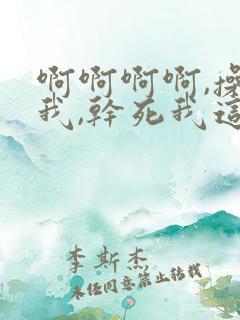 啊啊啊啊,操
我,幹死我這
李斯杰
未经同意禁止转载